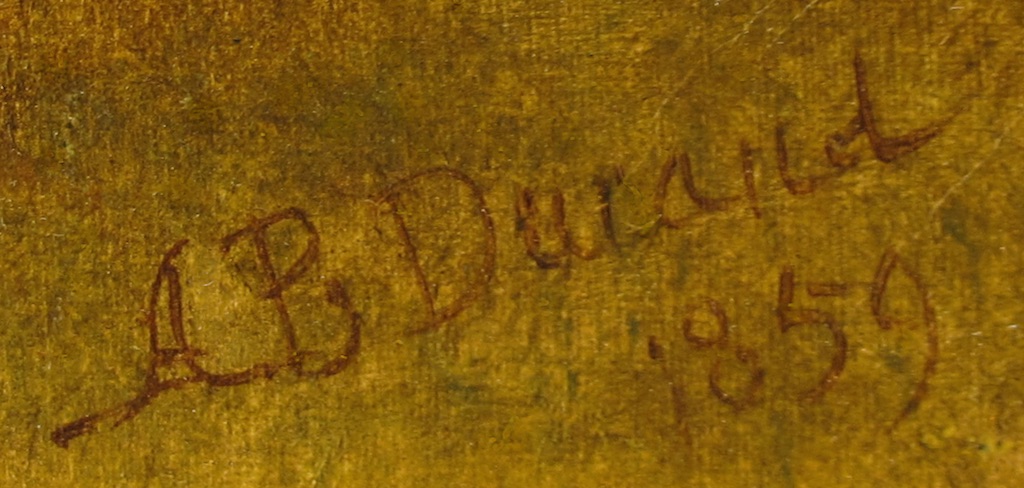 AB Durand
1859